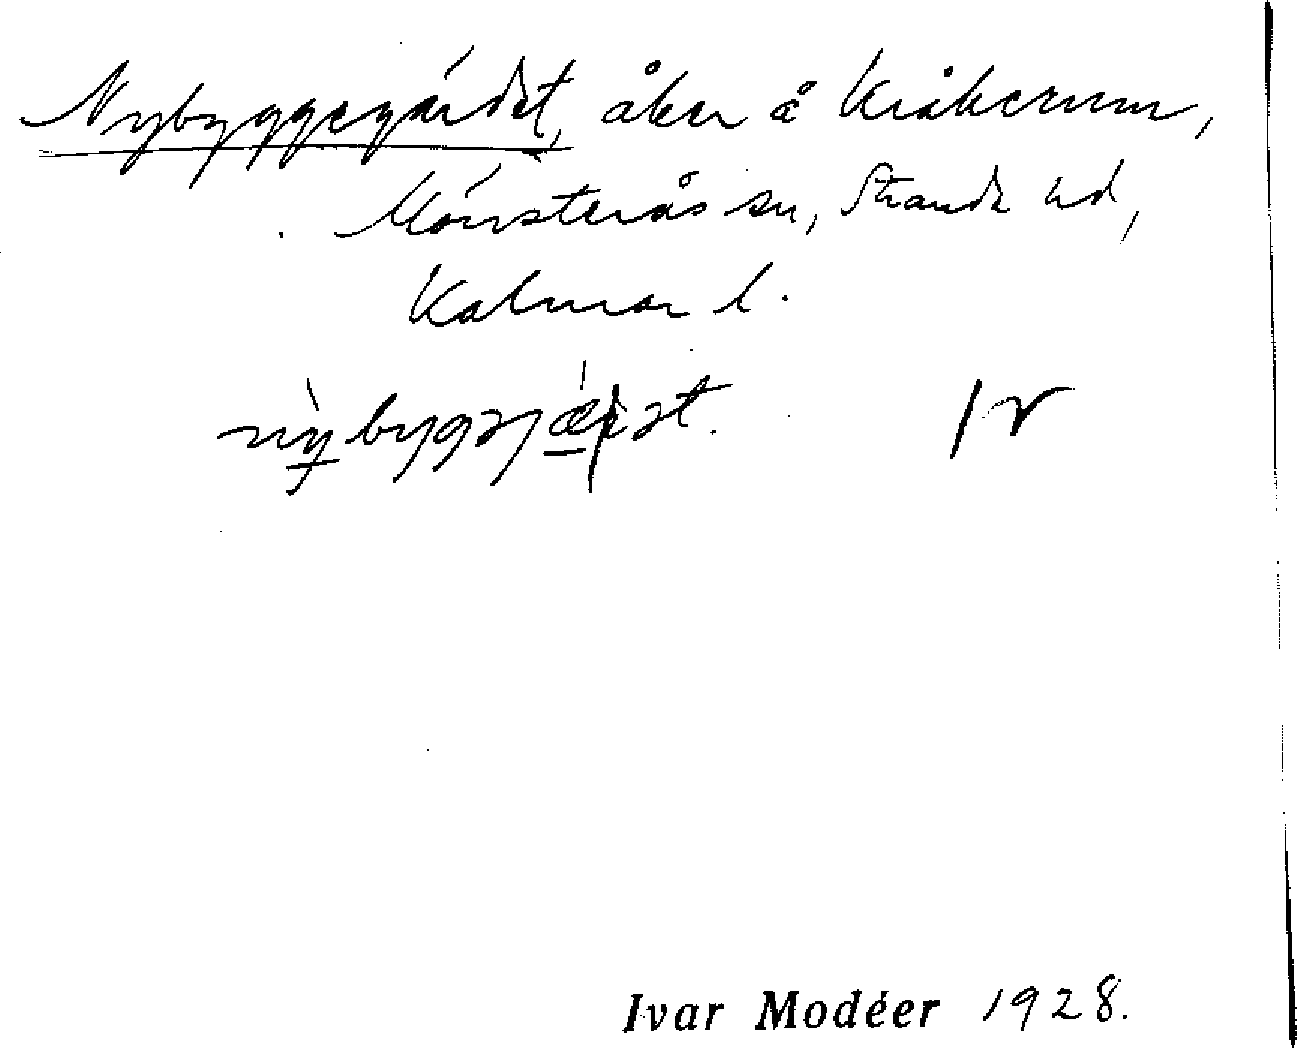 Nybyggegärdet, åker å Kråkerum,
Mönsterås sn, Stranda hd,
Kalmar l.
Ivar Modéer 1928.